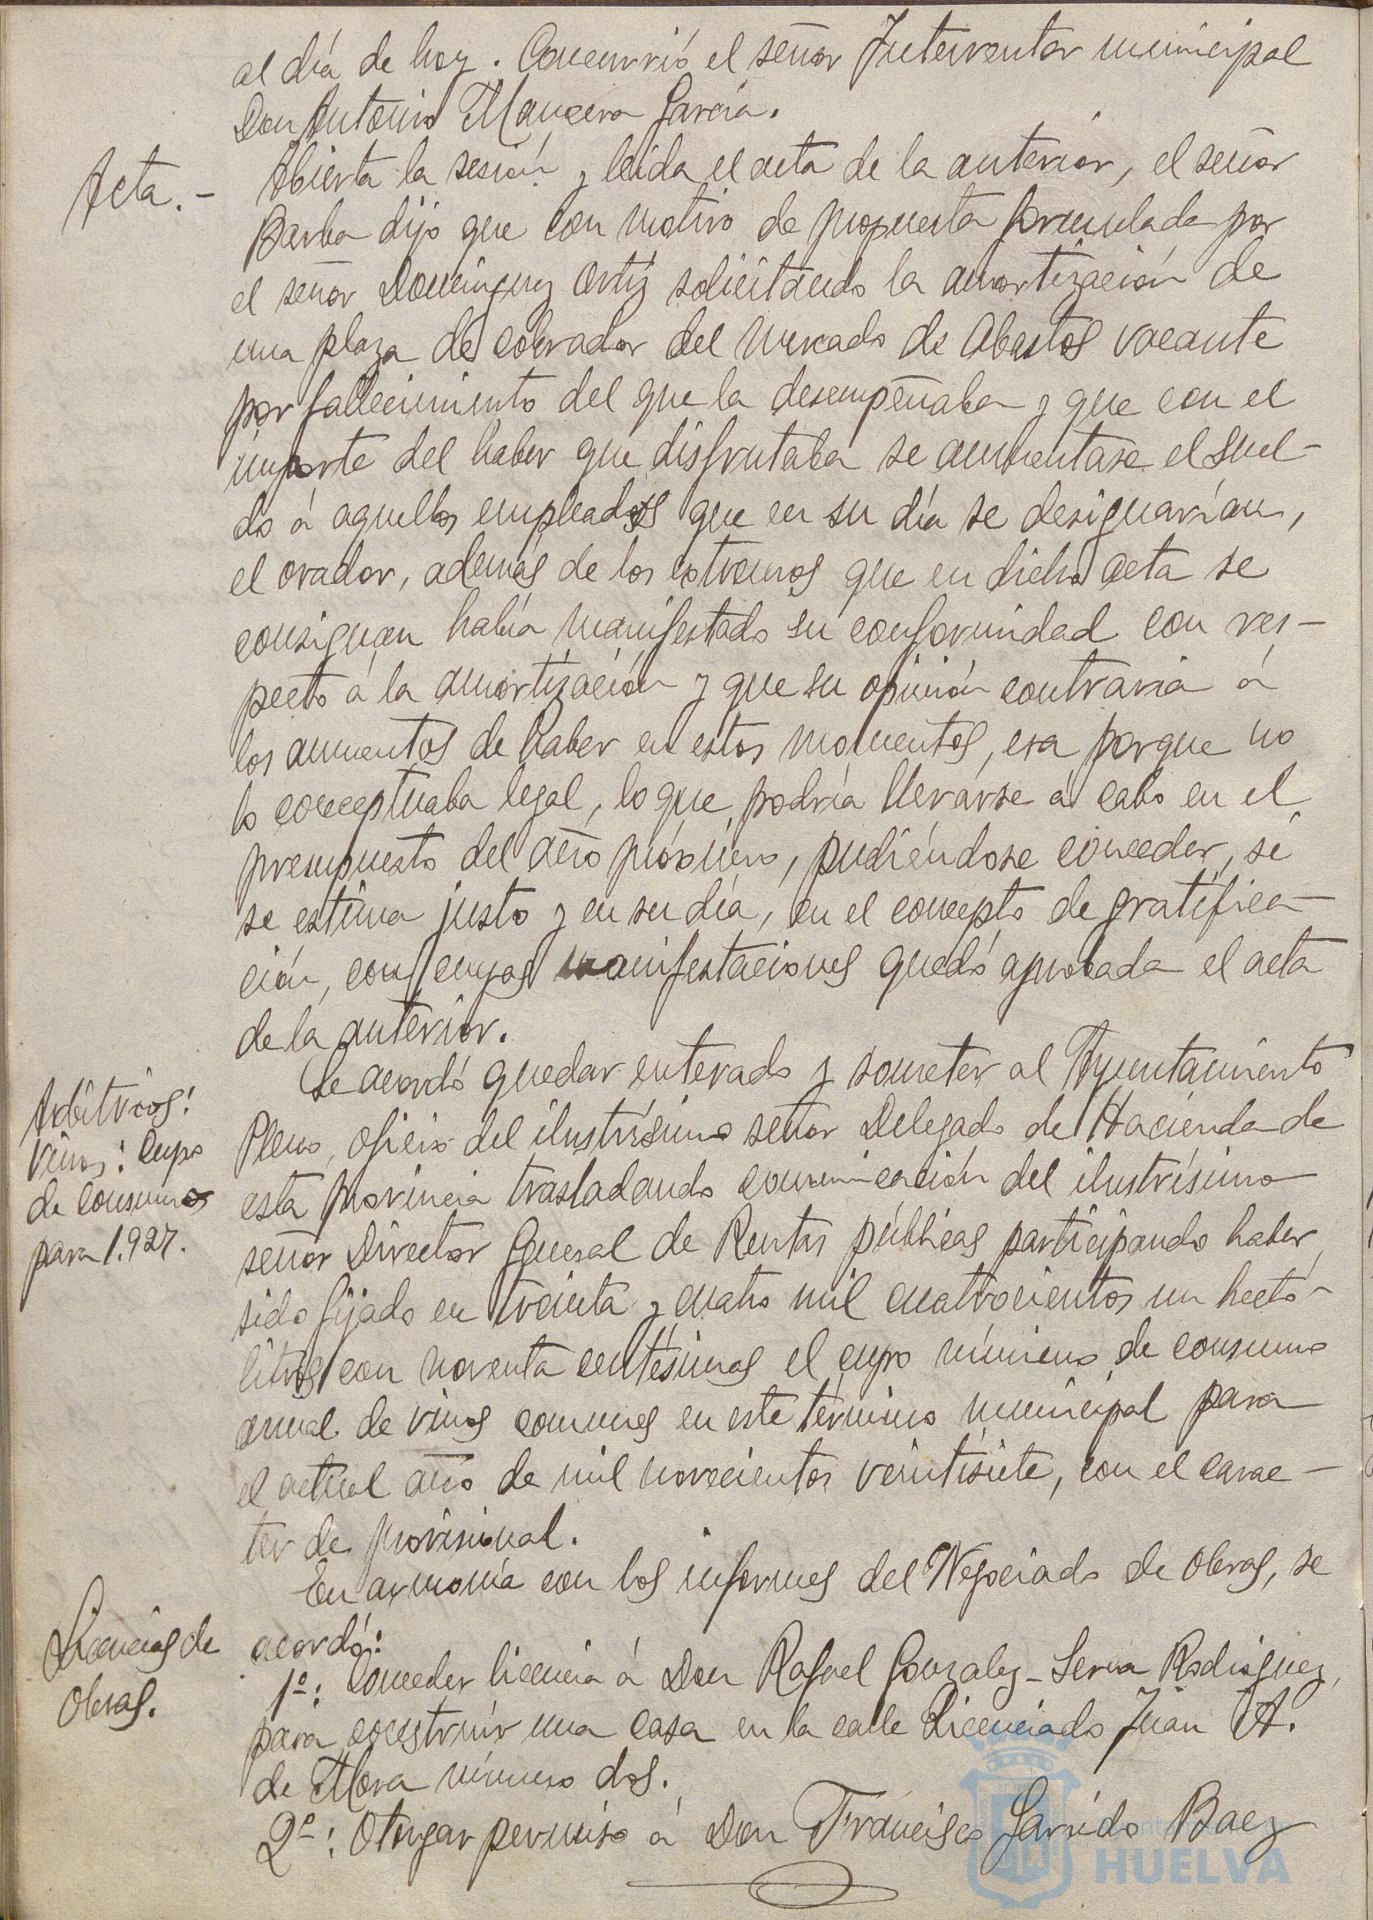 al día de hoy. Concurrió el señor Interventor municipal
Don Antonio Mancera García.
Acta.- Abierta la sesión y leida el acta de la anterior, el señor
Barba dijo que con motivo de propuesta formulada por
el señor Dominguez Ortiz solicitando la amortización de
una plaza de cobrador del Mercado de Abastos vacante
por fallecimiento del que la desempeñaba y que con el
importe del haber que disfrutaba se aumentase el suel-
do á aquellos empleados que en su día se designarían,
el orador, además de los extremos que en dicha acta se
consignan había manifestado su conformidad con res-
pecto á la amortización y que su opinión contraria á
los aumentos de haber en estos momentos, era porque no
lo conceptuaba legal, lo que podría llevárse á cabo en el
presupuesto del año próximo, pudiéndose conceder, si
se estima justo y en su día, en el concepto de gratifica-
ción, con cuyas manifestaciones quedó aprobada el acta
de la anterior.
Arbitrios:
Vinos: Cupo
de consumos
para 1.927.
Se acordó quedar enterado y someter al Ayuntamiento
Pleno, oficio del ilustrísimo señor Delegado de Hacienda de
esta provincia trasladando comunicación del ilustrísimo
señor Director General de Rentas públicas participando haber
sido fijado en treinta y cuatro mil cuatrocientos un hectó-
litros con noventa centésimas el cupo mínimo de consumo
anual de vinos comunes en este término municipal para
el actual año de mil novecientos veintisiete, con el carac-
ter de provisional.
Licencias de
Obras.
En armonía con los informes del Negociado de Obras, se
acordó:
1º: Conceder licencia á Don Rafael Gonzalez-Serna Rodriguez,
para construír una casa en la calle Licenciado Juan A.
de Mora número dos.
2º: Otorgar permiso á Don Francisco Garrido Baez
HUELVA